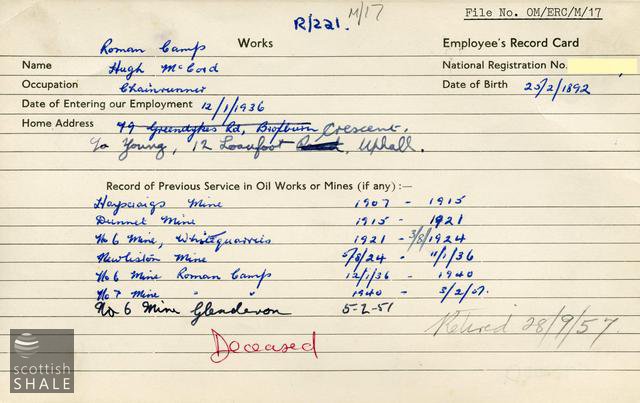 R/221. M/17 File No. OM/ERC/M/17
Roman Camp Works Employee's Record Card
Name Hugh McCord National Registration No.
Occupation Chainrunner Date of Birth 25/2/1892
Date of Entering our Employment 12/1/1936
Home Address 79 Greendykes Rd, Broxburn Crescent.
c/o Young, 12 Loanfoot Uphall.
Record of Previous Service in Oil Works or Mines (if any) :—
Hayscraigs Mine 1907 - 1915
Dunnet Mine 1915 - 1921
No 6 Mine, Whitequarries 1921 - 3/8/1924
Newliston Mine 5/8/24 - 11/1/36
No 6 Mine Roman Camp 12/1/36 - 1940
No 7 Mine " " 1940 - 3/2/51.
No 6 Mine Glendevon 5-2-51
Retired 28/9/57.
Deceased
SCOTTISH
SHALE